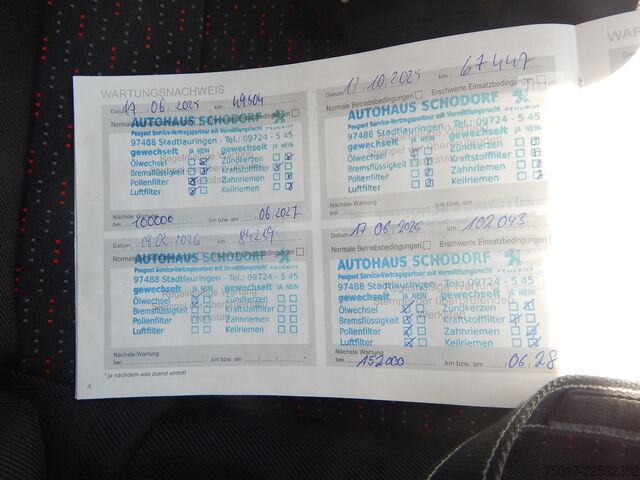 WARTUNGSNACHWEIS
Datum 17 06.2025 km 49504
AUTOHAUS SCHODORF
Peugeot Service-Vertragspartner mit Vermittlungsrecht PEUGEOT
97488 Stadtlauringen - Tel.: 09724 - 5 45
gewechselt JA NEIN gewechselt JA NEIN
Ölwechsel Zündkerzen
Bremsflüssigkeit Kraftstofffilter
Pollenfilter Zahnriemen
Luftfilter Keilriemen
Nächste Wartung
bei 100000 km bzw. am 06.2027
Datum 10.2025 km 67447
Normale Betriebsbedingungen Erschwerte Einsatzbedingungen
AUTOHAUS SCHODORF
Peugeot Service-Vertragspartner mit Vermittlungsrecht PEUGEOT
97488 Stadtlauringen - Tel.: 09724 - 5 45
gewechselt JA NEIN gewechselt JA NEIN
Ölwechsel Zündkerzen
Bremsflüssigkeit Kraftstofffilter
Pollenfilter Zahnriemen
Luftfilter Keilriemen
Nächste Wartung
bei km bzw. am
Datum 19.02.2026 km 84219
AUTOHAUS SCHODORF
Peugeot Service-Vertragspartner mit Vermittlungsrecht PEUGEOT
97488 Stadtlauringen - Tel.: 09724 - 5 45
gewechselt JA NEIN gewechselt JA NEIN
Ölwechsel Zündkerzen
Bremsflüssigkeit Kraftstofffilter
Pollenfilter Zahnriemen
Luftfilter Keilriemen
Nächste Wartung
bei km bzw. am / / *
Datum 17.06.2026 km 102043
Normale Betriebsbedingungen Erschwerte Einsatzbedingungen
AUTOHAUS SCHODORF
Peugeot Service-Vertragspartner mit Vermittlungsrecht PEUGEOT
97488 Stadtlauringen - Tel.: 09724 - 5 45
gewechselt JA NEIN gewechselt JA NEIN
Ölwechsel Zündkerzen
Bremsflüssigkeit Kraftstofffilter
Pollenfilter Zahnriemen
Luftfilter Keilriemen
Nächste Wartung
bei 152000 km bzw. am 06.28
* je nachdem was zuerst eintritt
4
75017-22532382